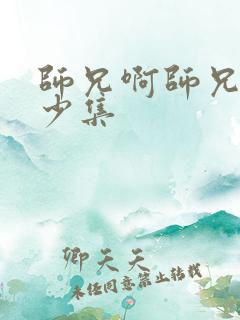 師兄啊師兄
少集
卿天天
未經同意禁止轉載